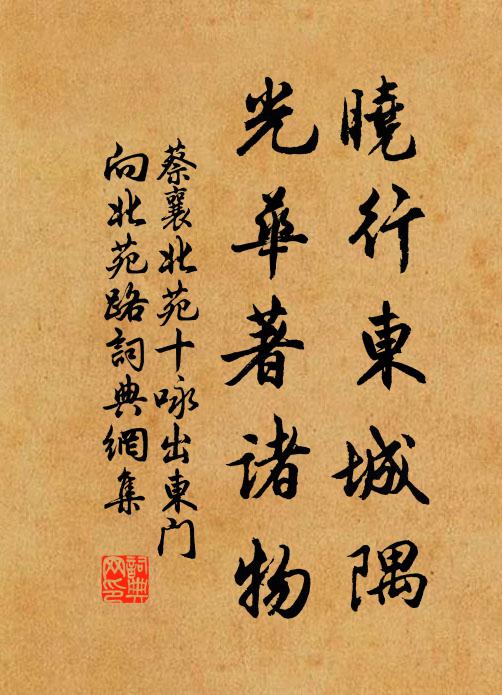 曉行東城隅
光華著諸物
蔡襄北苑十咏出東门
向北苑路詞典網集
詞典
网印